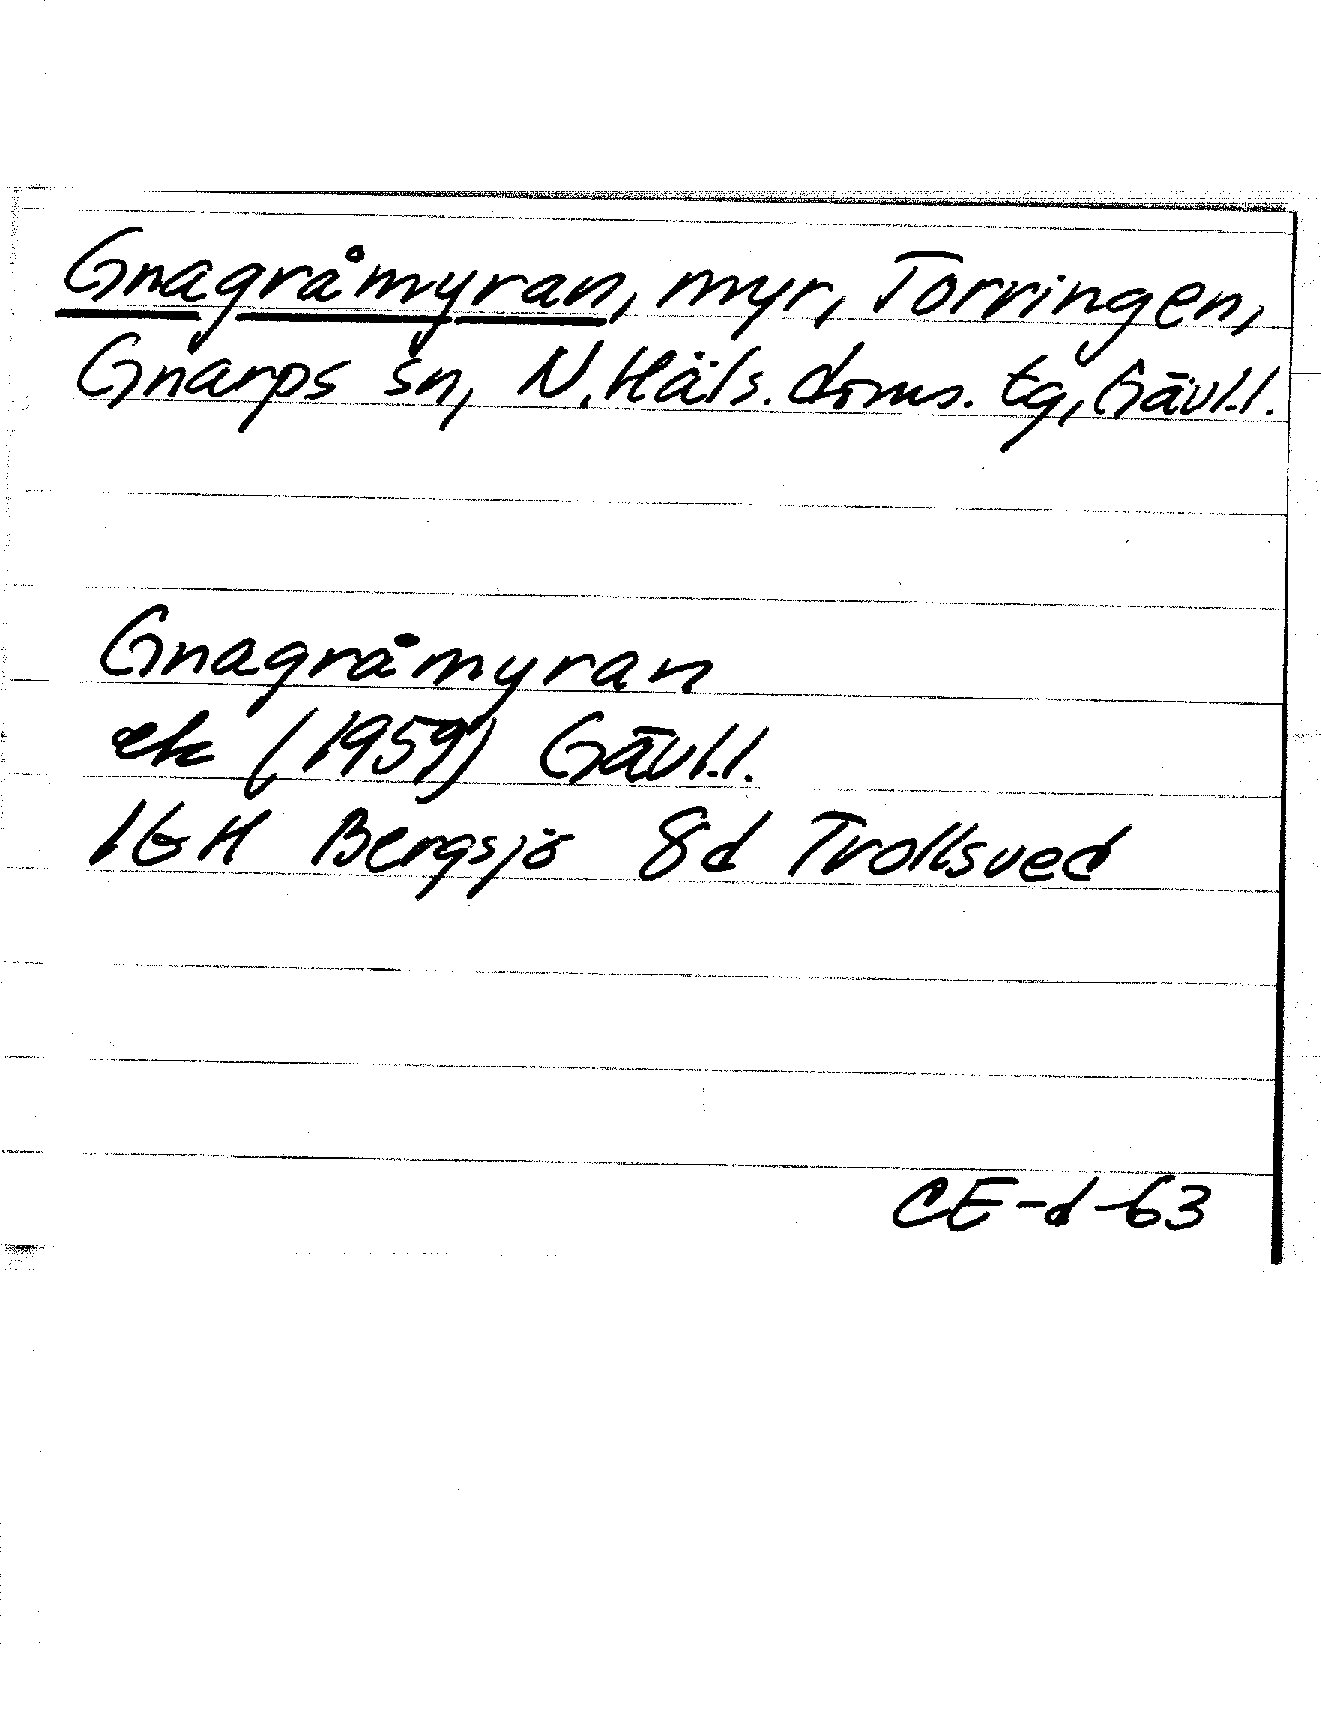 Gnagråmyran, myr, Torringen,
Gnarps sn, N. Häls. doms. tg, Gävl.l.
Gnagråmyran
ek (1959) Gävl.l.
16H Bergsjö 8d Trollsved
CE-d-63